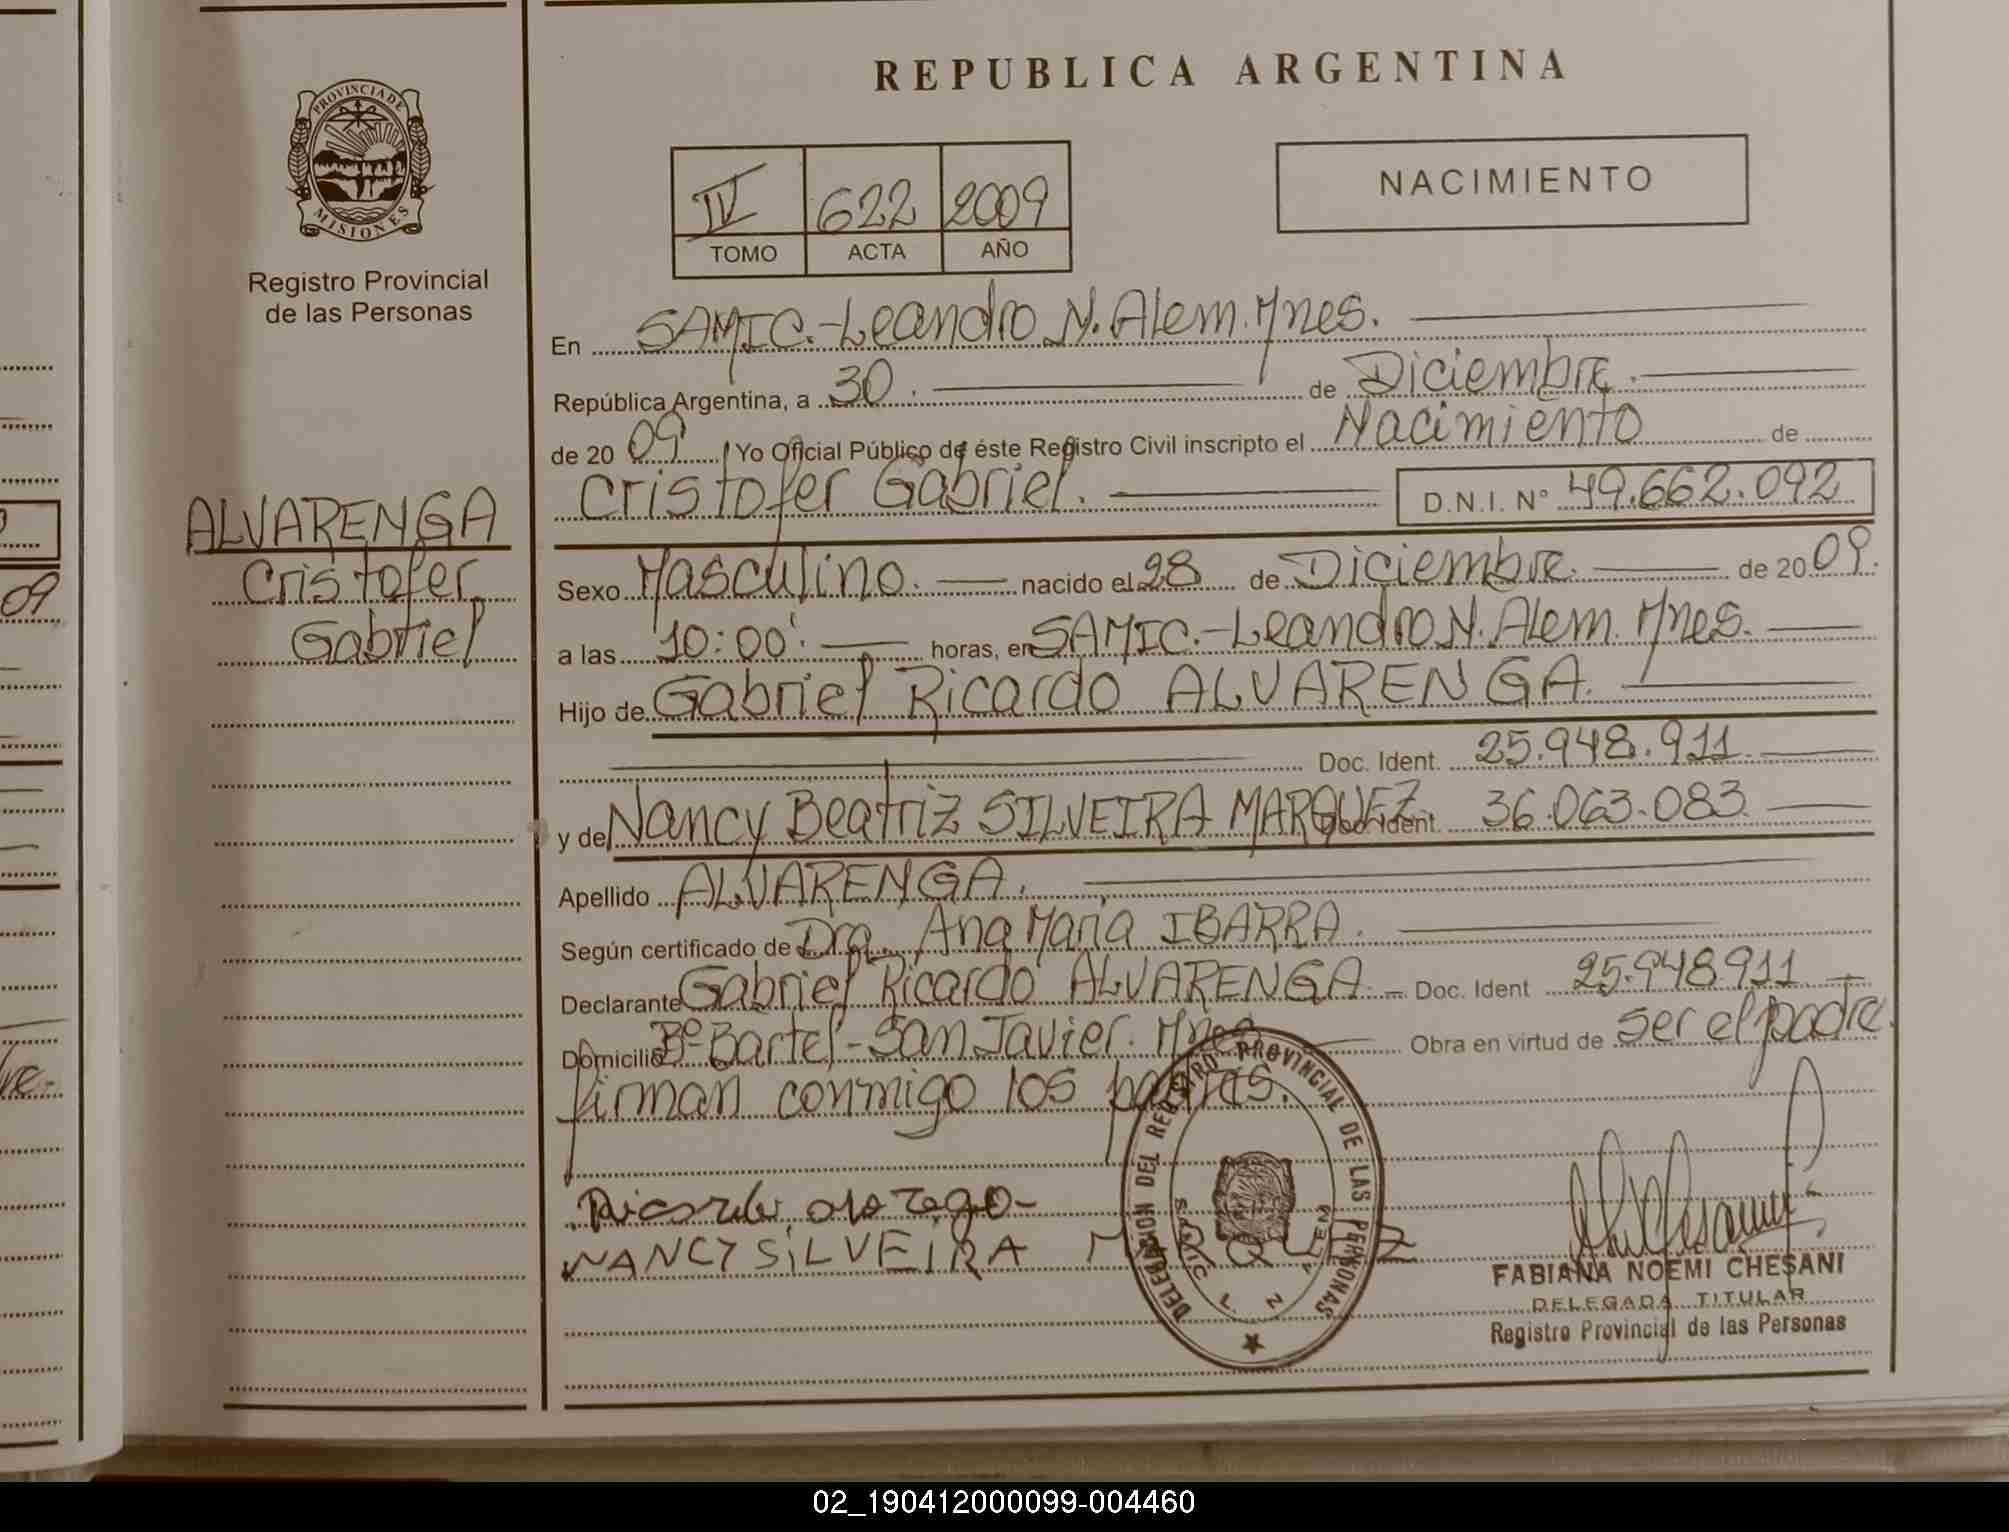 REPUBLICA ARGENTINA
PROVINCIA DE
MISIONES
Registro Provincial
de las Personas
NACIMIENTO
IV 622 2009
TOMO ACTA AÑO
En SAMIC.-Leandro N. Alem. Mnes.
República Argentina, a 30. de Diciembre.
de 20 09 Yo Oficial Público de éste Registro Civil inscripto el Nacimiento de
Cristofer Gabriel. D.N.I. N° 49.662.092
ALVARENGA
Cristofer
Gabriel
Sexo Masculino. nacido el 28 de Diciembre. de 20 09.
a las 10:00'. horas, en SAMIC.-Leandro N. Alem. Mnes.
Hijo de Gabriel Ricardo ALVARENGA.
Doc. Ident. 25.948.911.
y de Nancy Beatriz SILVEIRA MARQUEZ Doc. Ident. 36.063.083
Apellido ALVARENGA.
Según certificado de Dra. Ana Maria IBARRA.
Declarante Gabriel Ricardo ALVARENGA Doc. Ident 25.948.911
Domicilio B° Bartel-San Javier. Mnes Obra en virtud de ser el padre.
firman conmigo los padres.
DELEGACION DEL REGISTRO PROVINCIAL DE LAS PERSONAS
SAMIC L. N.
NANCY SiLVEIRA MARQUEZ
FABIANA NOEMI CHESANI
DELEGADA TITULAR
Registro Provincial de las Personas
09
02_190412000099-004460